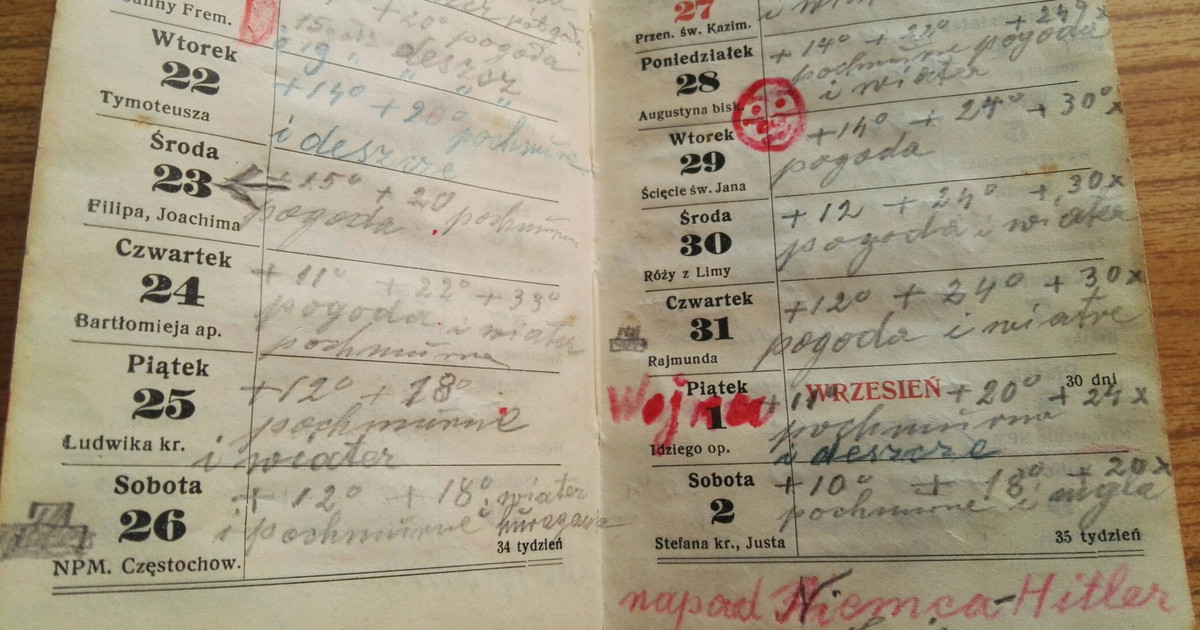 Joanny Frem.
+20° pogoda
deszcz
Wtorek
22
Tymoteusza
+14° +20° pochmurne
i deszcze
Środa
23
Filipa, Joachima
+15° +20
pogoda pochmurne
Czwartek
24
Bartłomieja ap.
+11° +22° +33°
pogoda i wiater
pochmurne
Piątek
25
Ludwika kr.
+12° +18°
pochmurne
i wiater
Sobota
26
NPM. Częstochow.
+12° +18° wiater
i pochmurne huragan
34 tydzień
27
Przen. św. Kazim.
Poniedziałek
28
Augustyna bisk.
+14° +22° +24° x
pochmurne pogoda
i wiater
Wtorek
29
Ścięcie św. Jana
+14° +24° +30° x
pogoda
Środa
30
Róży z Limy
+12 +24° +30 x
pogoda i wiater
Czwartek
31
Rajmunda
+12° +24° +30 x
pogoda i wiatre
Wojna
Piątek
1
Idziego op.
WRZESIEŃ 30 dni
+11° +20° +24 x
pochmurna
i deszcze
Sobota
2
Stefana kr., Justa
+10° +18° +20 x
pochmurne i mgla
35 tydzień
napad Niemca-Hitler